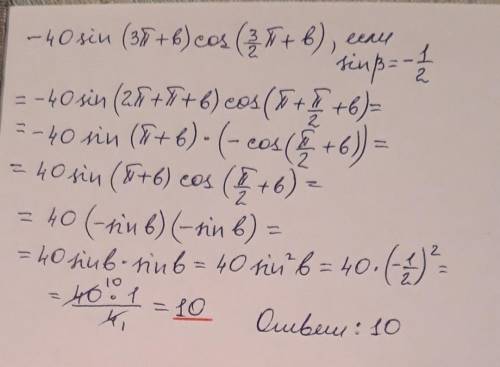 -40 sin (3π+в) cos (3/2 π+в), если
sinβ = -1/2
= -40 sin (2π+π+в) cos (π+π/2+в) =
= -40 sin (π+в)·(-cos(π/2+в)) =
= 40 sin (π+в) cos (π/2+в) =
= 40 (-sin в)(-sin в) =
= 40 sin в · sin в = 40 sin² в = 40·(-1/2)² =
= 40 10 · 1 / 4 1 = 10
Ответ: 10